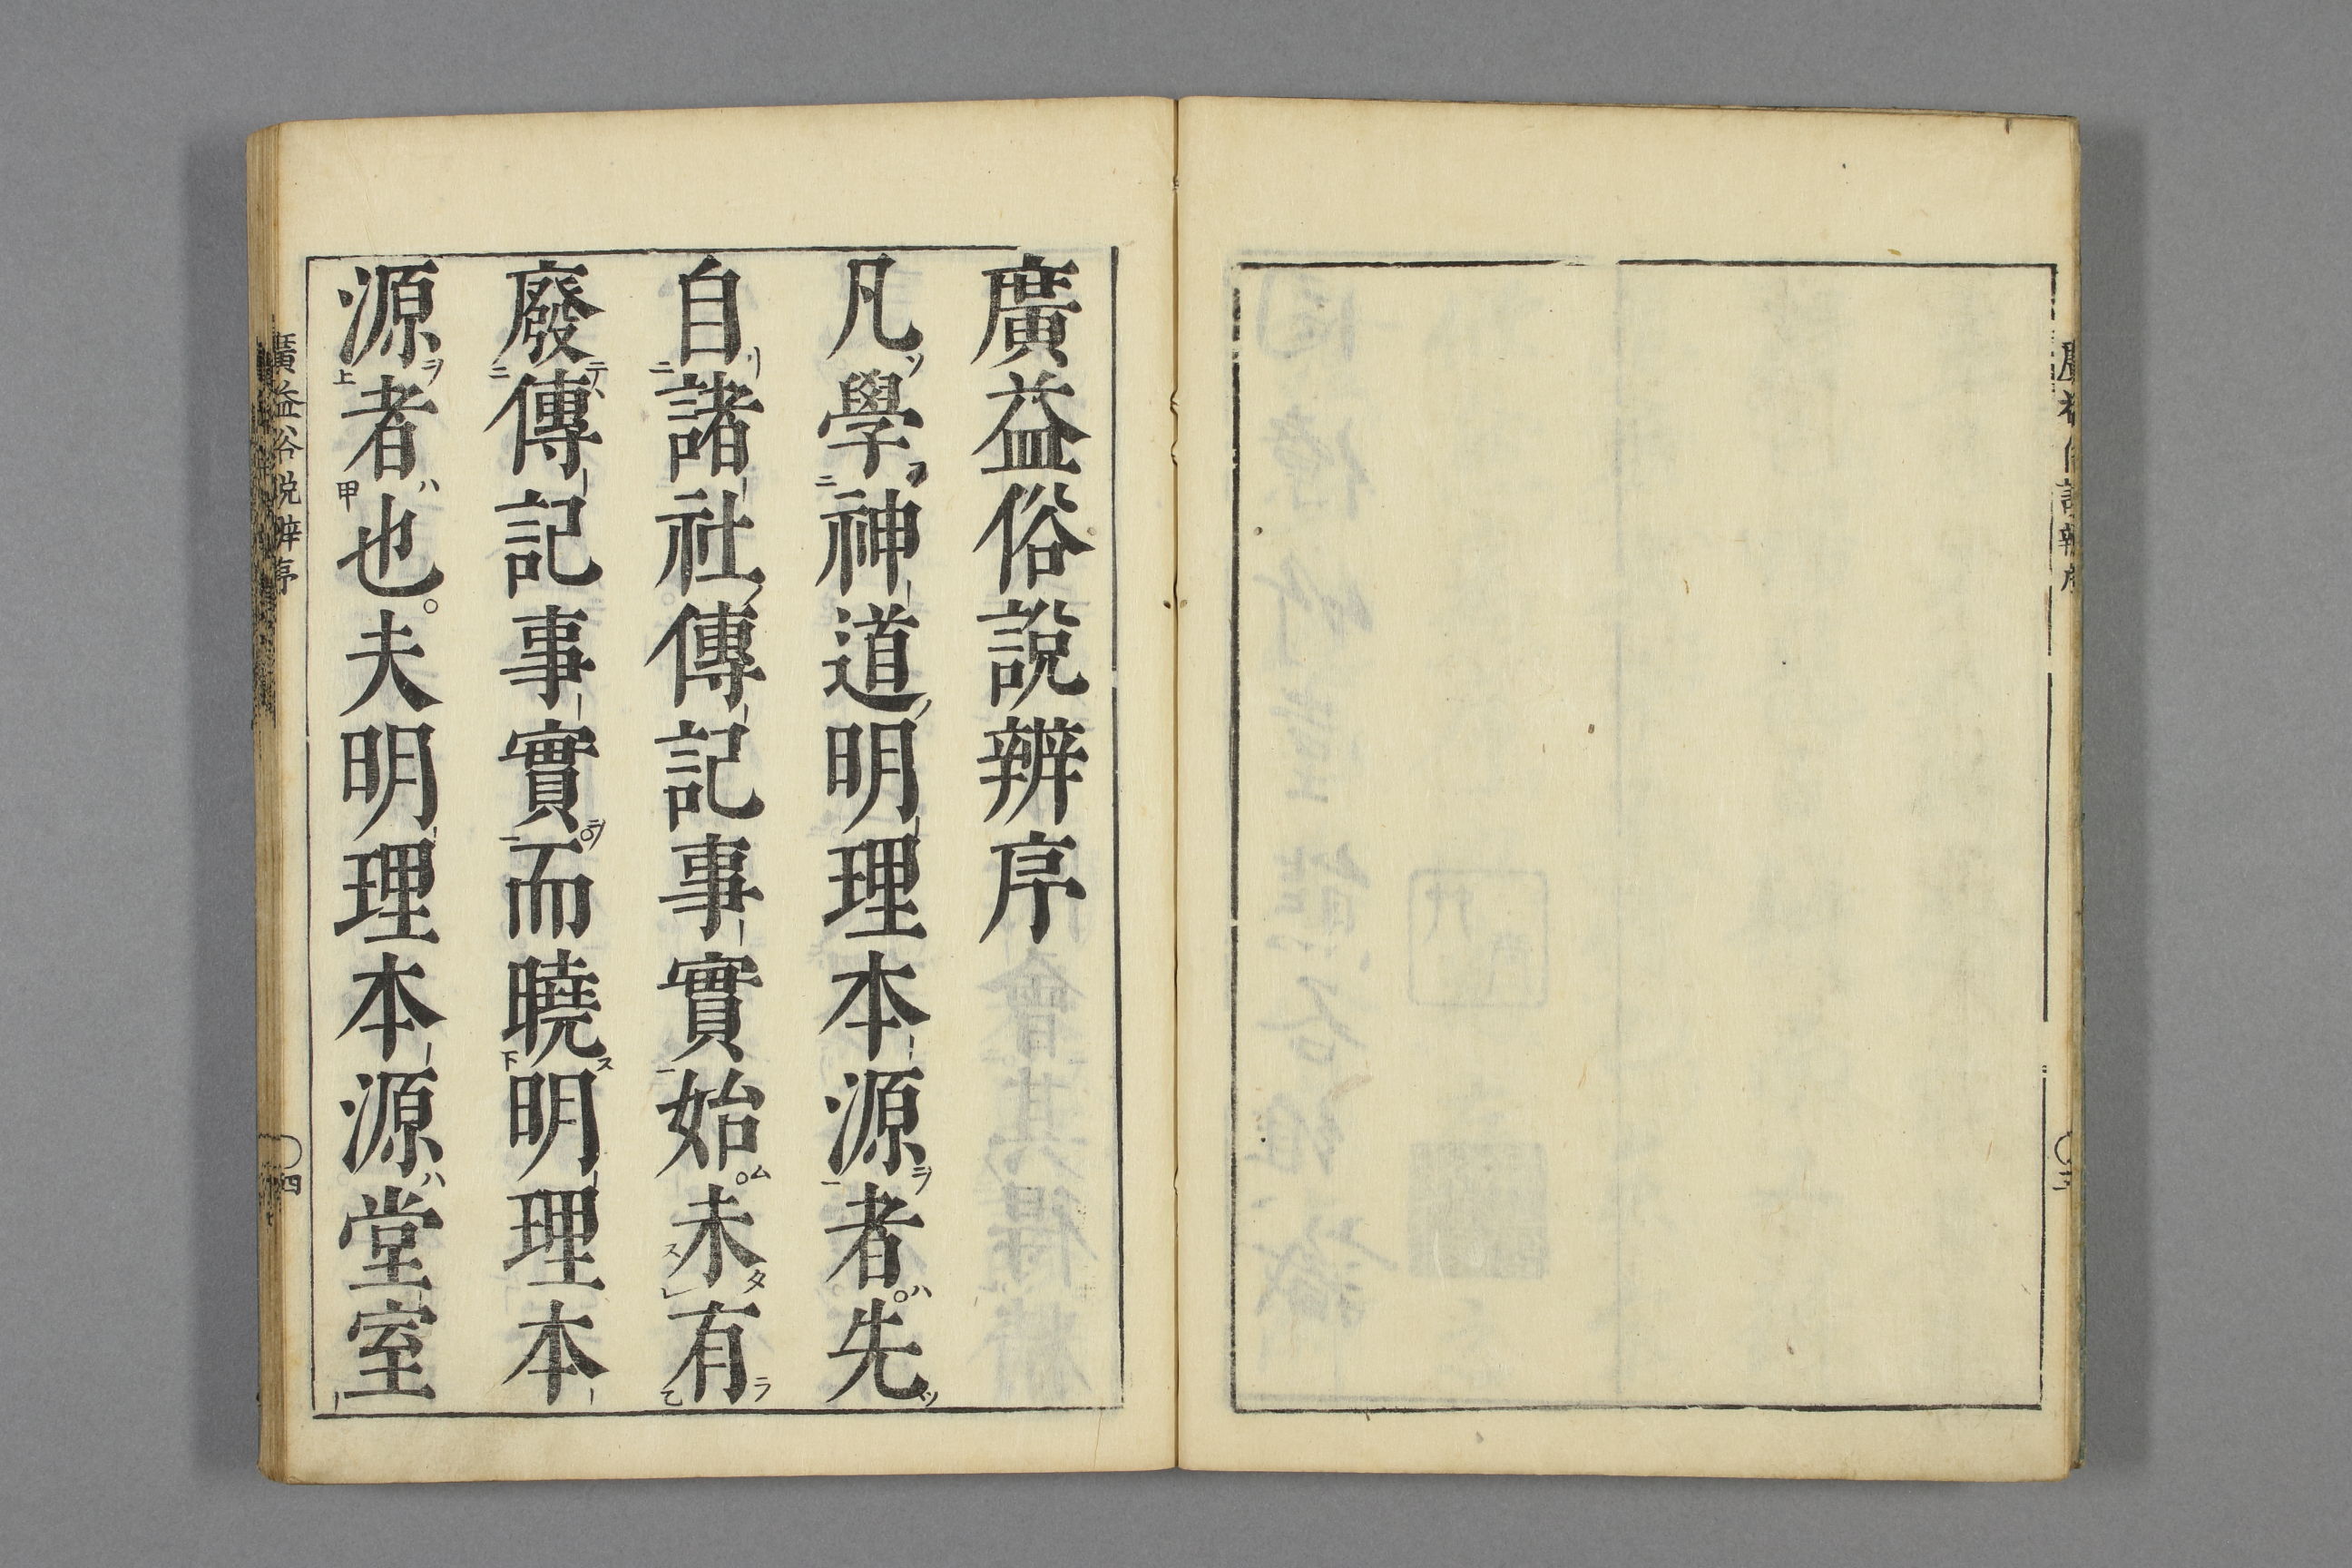 廣益俗說辨序
凡學神道明理本源者先
自諸社傳記事實始未有
廢傳記事實而曉明理本
源者也夫明理本源堂室
廣益俗説辨序
四